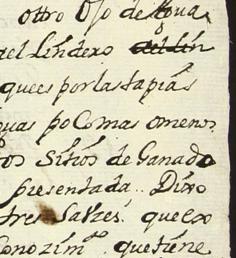 ottro Ojo de Agua
del Lindero
quees por las tapias
guas po Comas omenos
tos Sitios de Ganado
presentada.. Dixo
tres Salzes. que ex
Conozim^to. que tiene